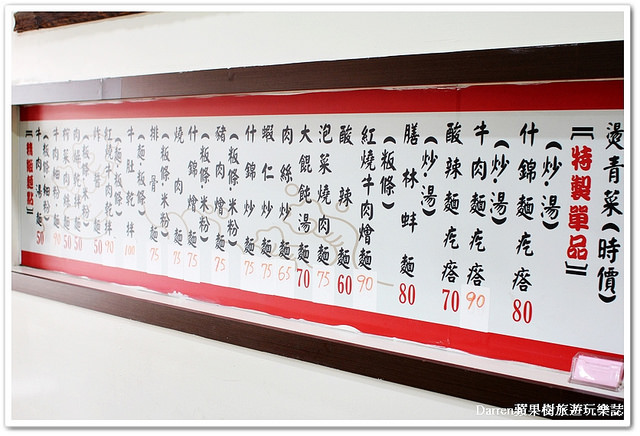 燙青菜(時價)
【特製單品】
什錦麵疙瘩 80
(炒·湯)
牛肉麵疙瘩 90
(炒·湯)
酸辣麵疙瘩 70
(炒·湯)
膳林蚌麵 80
(粄條)
紅燒牛肉燴麵 90
酸辣麵 60
泡菜燒肉麵 75
大餛飩湯麵 70
肉絲炒麵 65
蝦仁炒麵 75
什錦炒麵 75
(粄條·米粉)
豬肉燴麵 75
(粄條·米粉)
什錦燴麵 75
燒肉麵 75
排骨麵 75
(麵·粄條)
牛肚乾拌 100
(麵·粄條)
紅燒牛肉乾拌 90
50
50
50
牛肉細粉麵 90
(粄條·細粉)
牛肉湯麵 50
【精緻麵點】
Darren蘋果樹旅遊玩樂誌